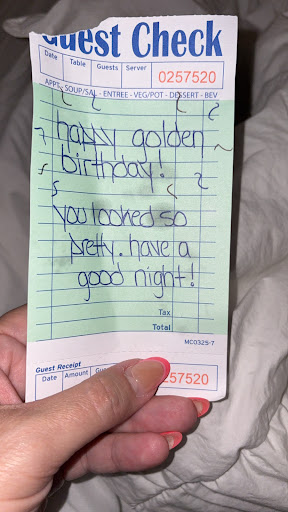 Guest Check
Date Table Guests Server 0257520
APPT - SOUP/SAL - ENTREE - VEG/POT - DESSERT - BEV
happy golden
birthday!
you looked so
pretty. have a
good night!
Tax
Total
MC0325-7
Guest Receipt
Date Amount 257520